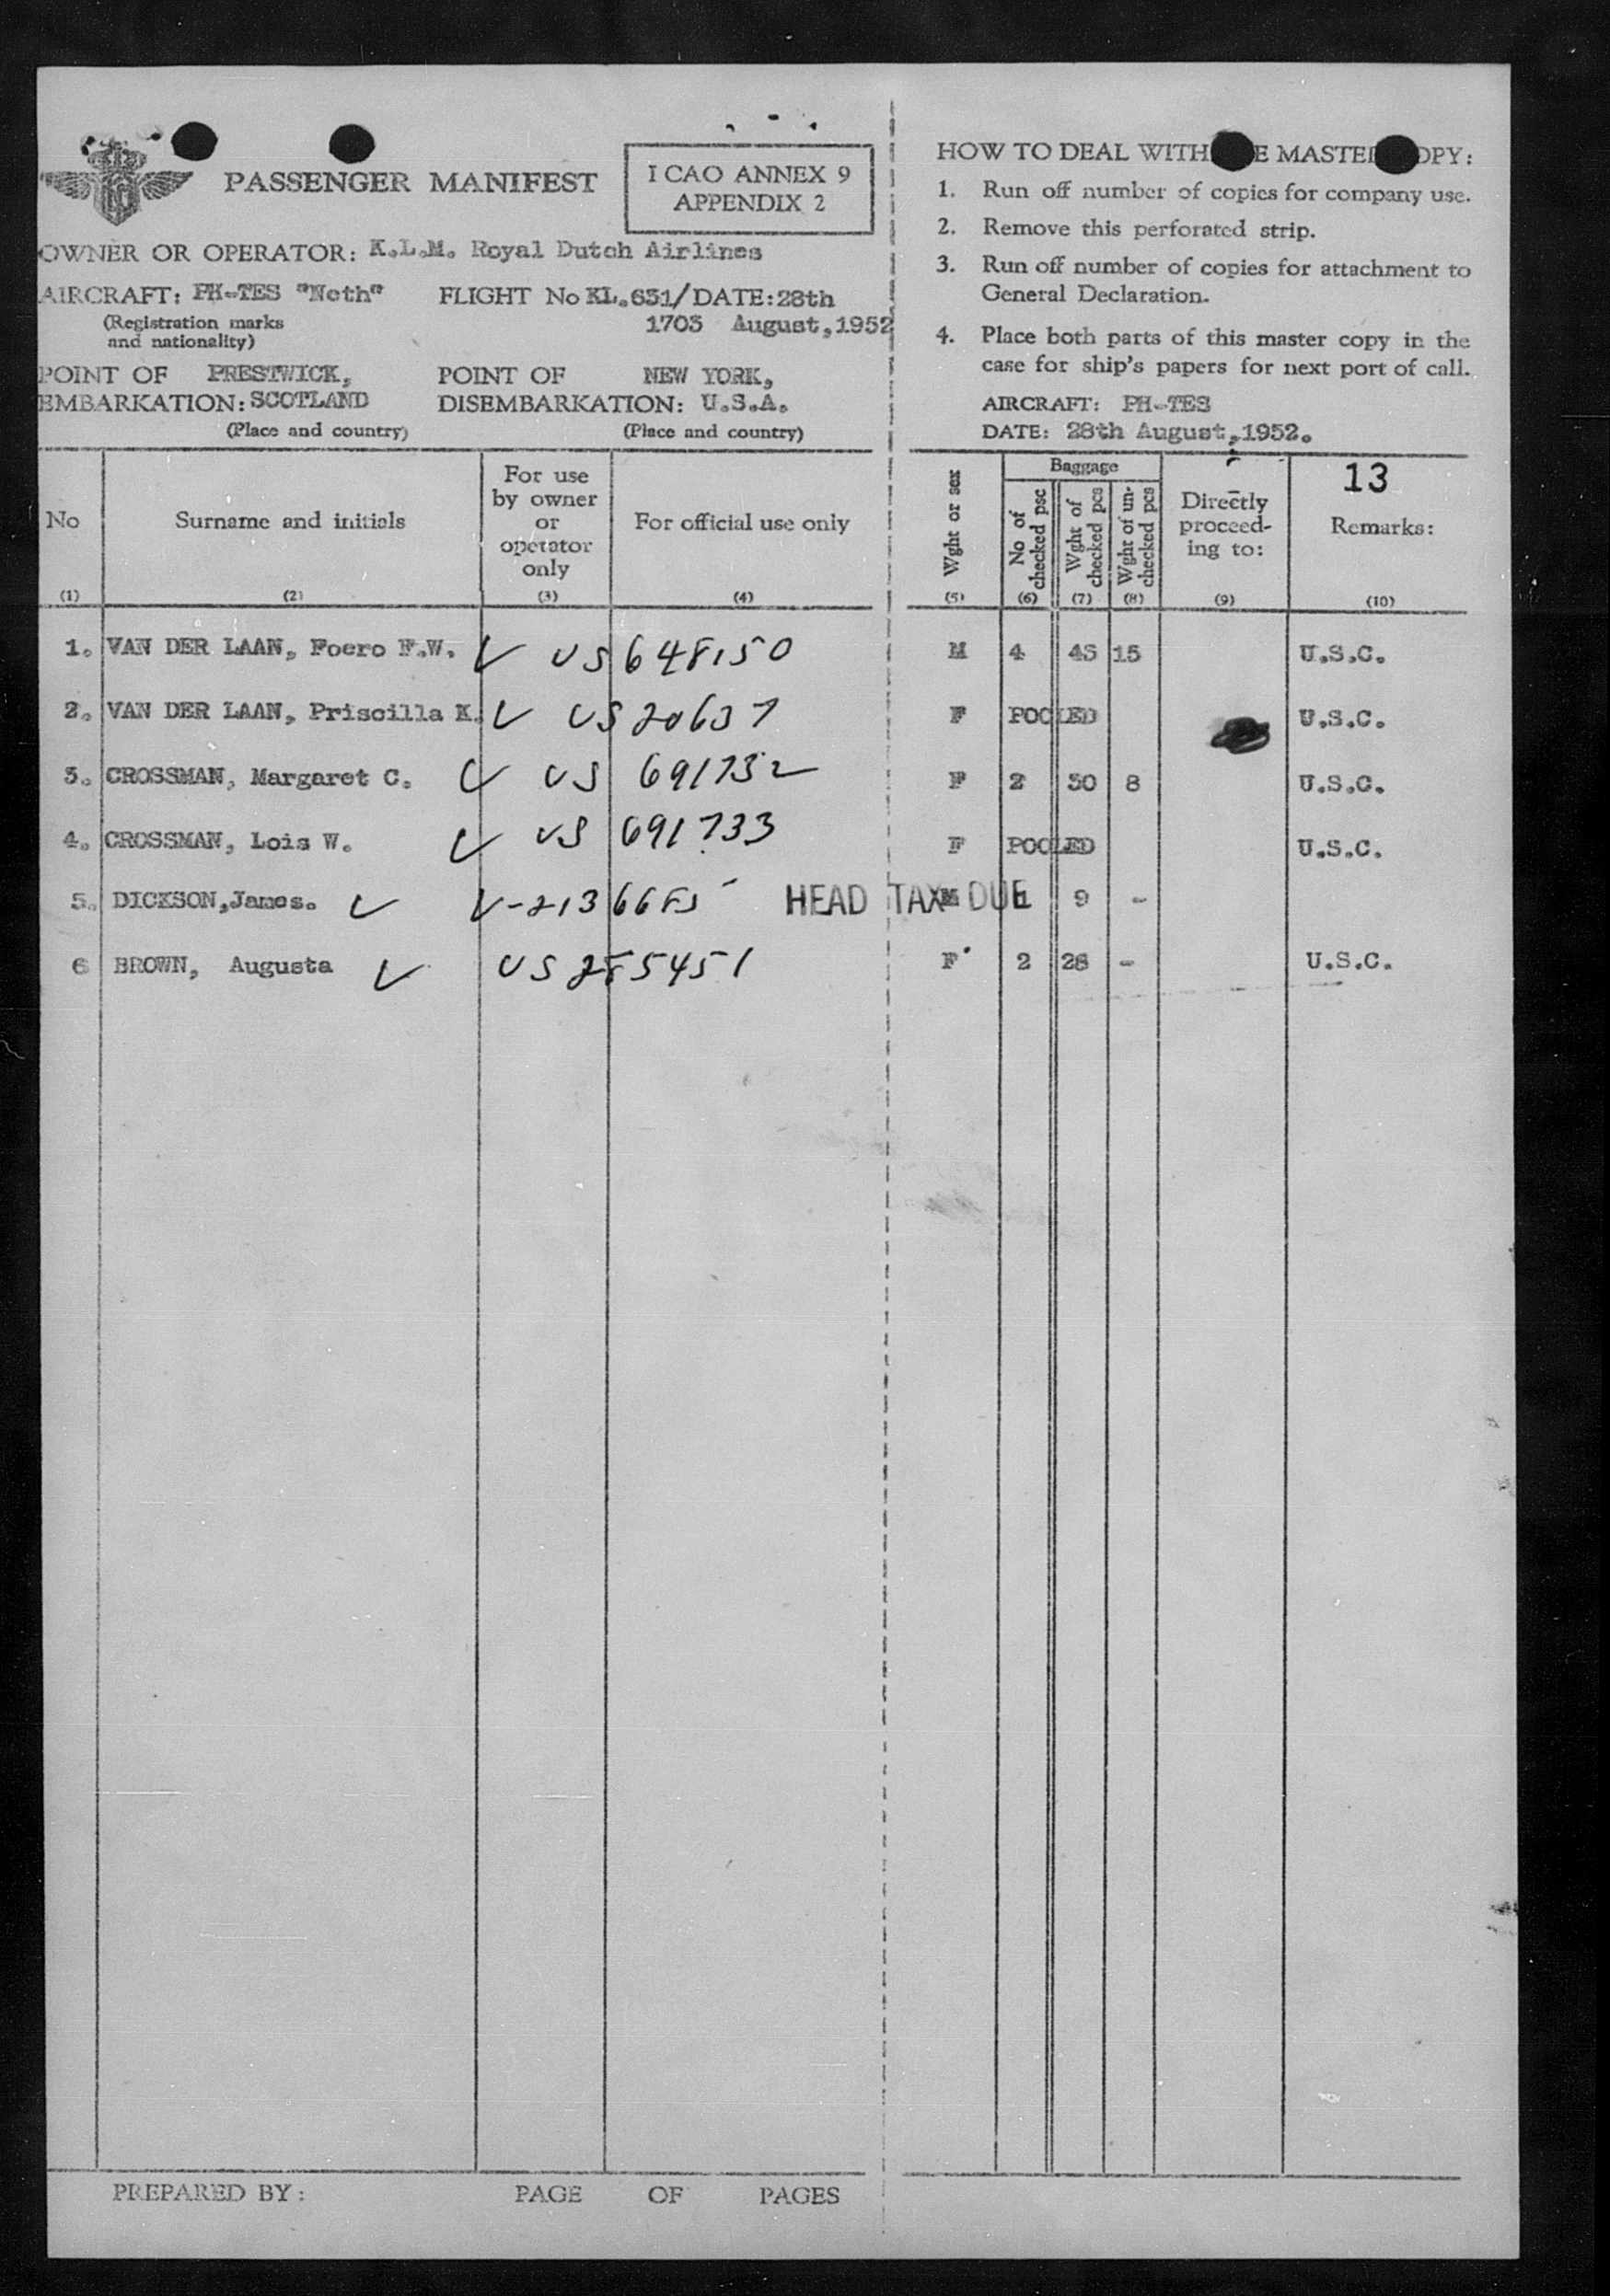 PASSENGER MANIFEST
I CAO ANNEX 9
APPENDIX 2
OWNER OR OPERATOR: K.L.M. Royal Dutch Airlines
AIRCRAFT: PH-TES "Neth" FLIGHT No KL.631/ DATE: 28th
(Registration marks 1703 August, 1952
and nationality)
POINT OF PRESTWICK, POINT OF NEW YORK,
EMBARKATION: SCOTLAND DISEMBARKATION: U.S.A.
(Place and country) (Place and country)
HOW TO DEAL WITH E MASTE OPY:
1. Run off number of copies for company use.
2. Remove this perforated strip.
3. Run off number of copies for attachment to
General Declaration.
4. Place both parts of this master copy in the
case for ship's papers for next port of call.
AIRCRAFT: PH-TES
DATE: 28th August, 1952.
No
(1)
Surname and initials
(2)
For use
by owner
or
operator
only
(3)
For official use only
(4)
Wght or sex
(5)
Baggage
No of
checked psc
(6)
Wght of
checked pcs
(7)
Wght of un-
checked pcs
(8)
Directly
proceed-
ing to:
(9)
13
Remarks:
(10)
1. VAN DER LAAN, Foero F.W. US 648150 M 4 45 15 U.S.C.
2. VAN DER LAAN, Priscilla K. US 20637 F POOLED U.S.C.
3. CROSSMAN, Margaret C. US 691732 F 2 30 8 U.S.C.
4. CROSSMAN, Lois W. US 691733 F POOLED U.S.C.
5. DICKSON, James. V-2136685 HEAD TAX DUE M 1 9 -
6 BROWN, Augusta US 285451 F 2 28 - U.S.C.
PREPARED BY: PAGE OF PAGES